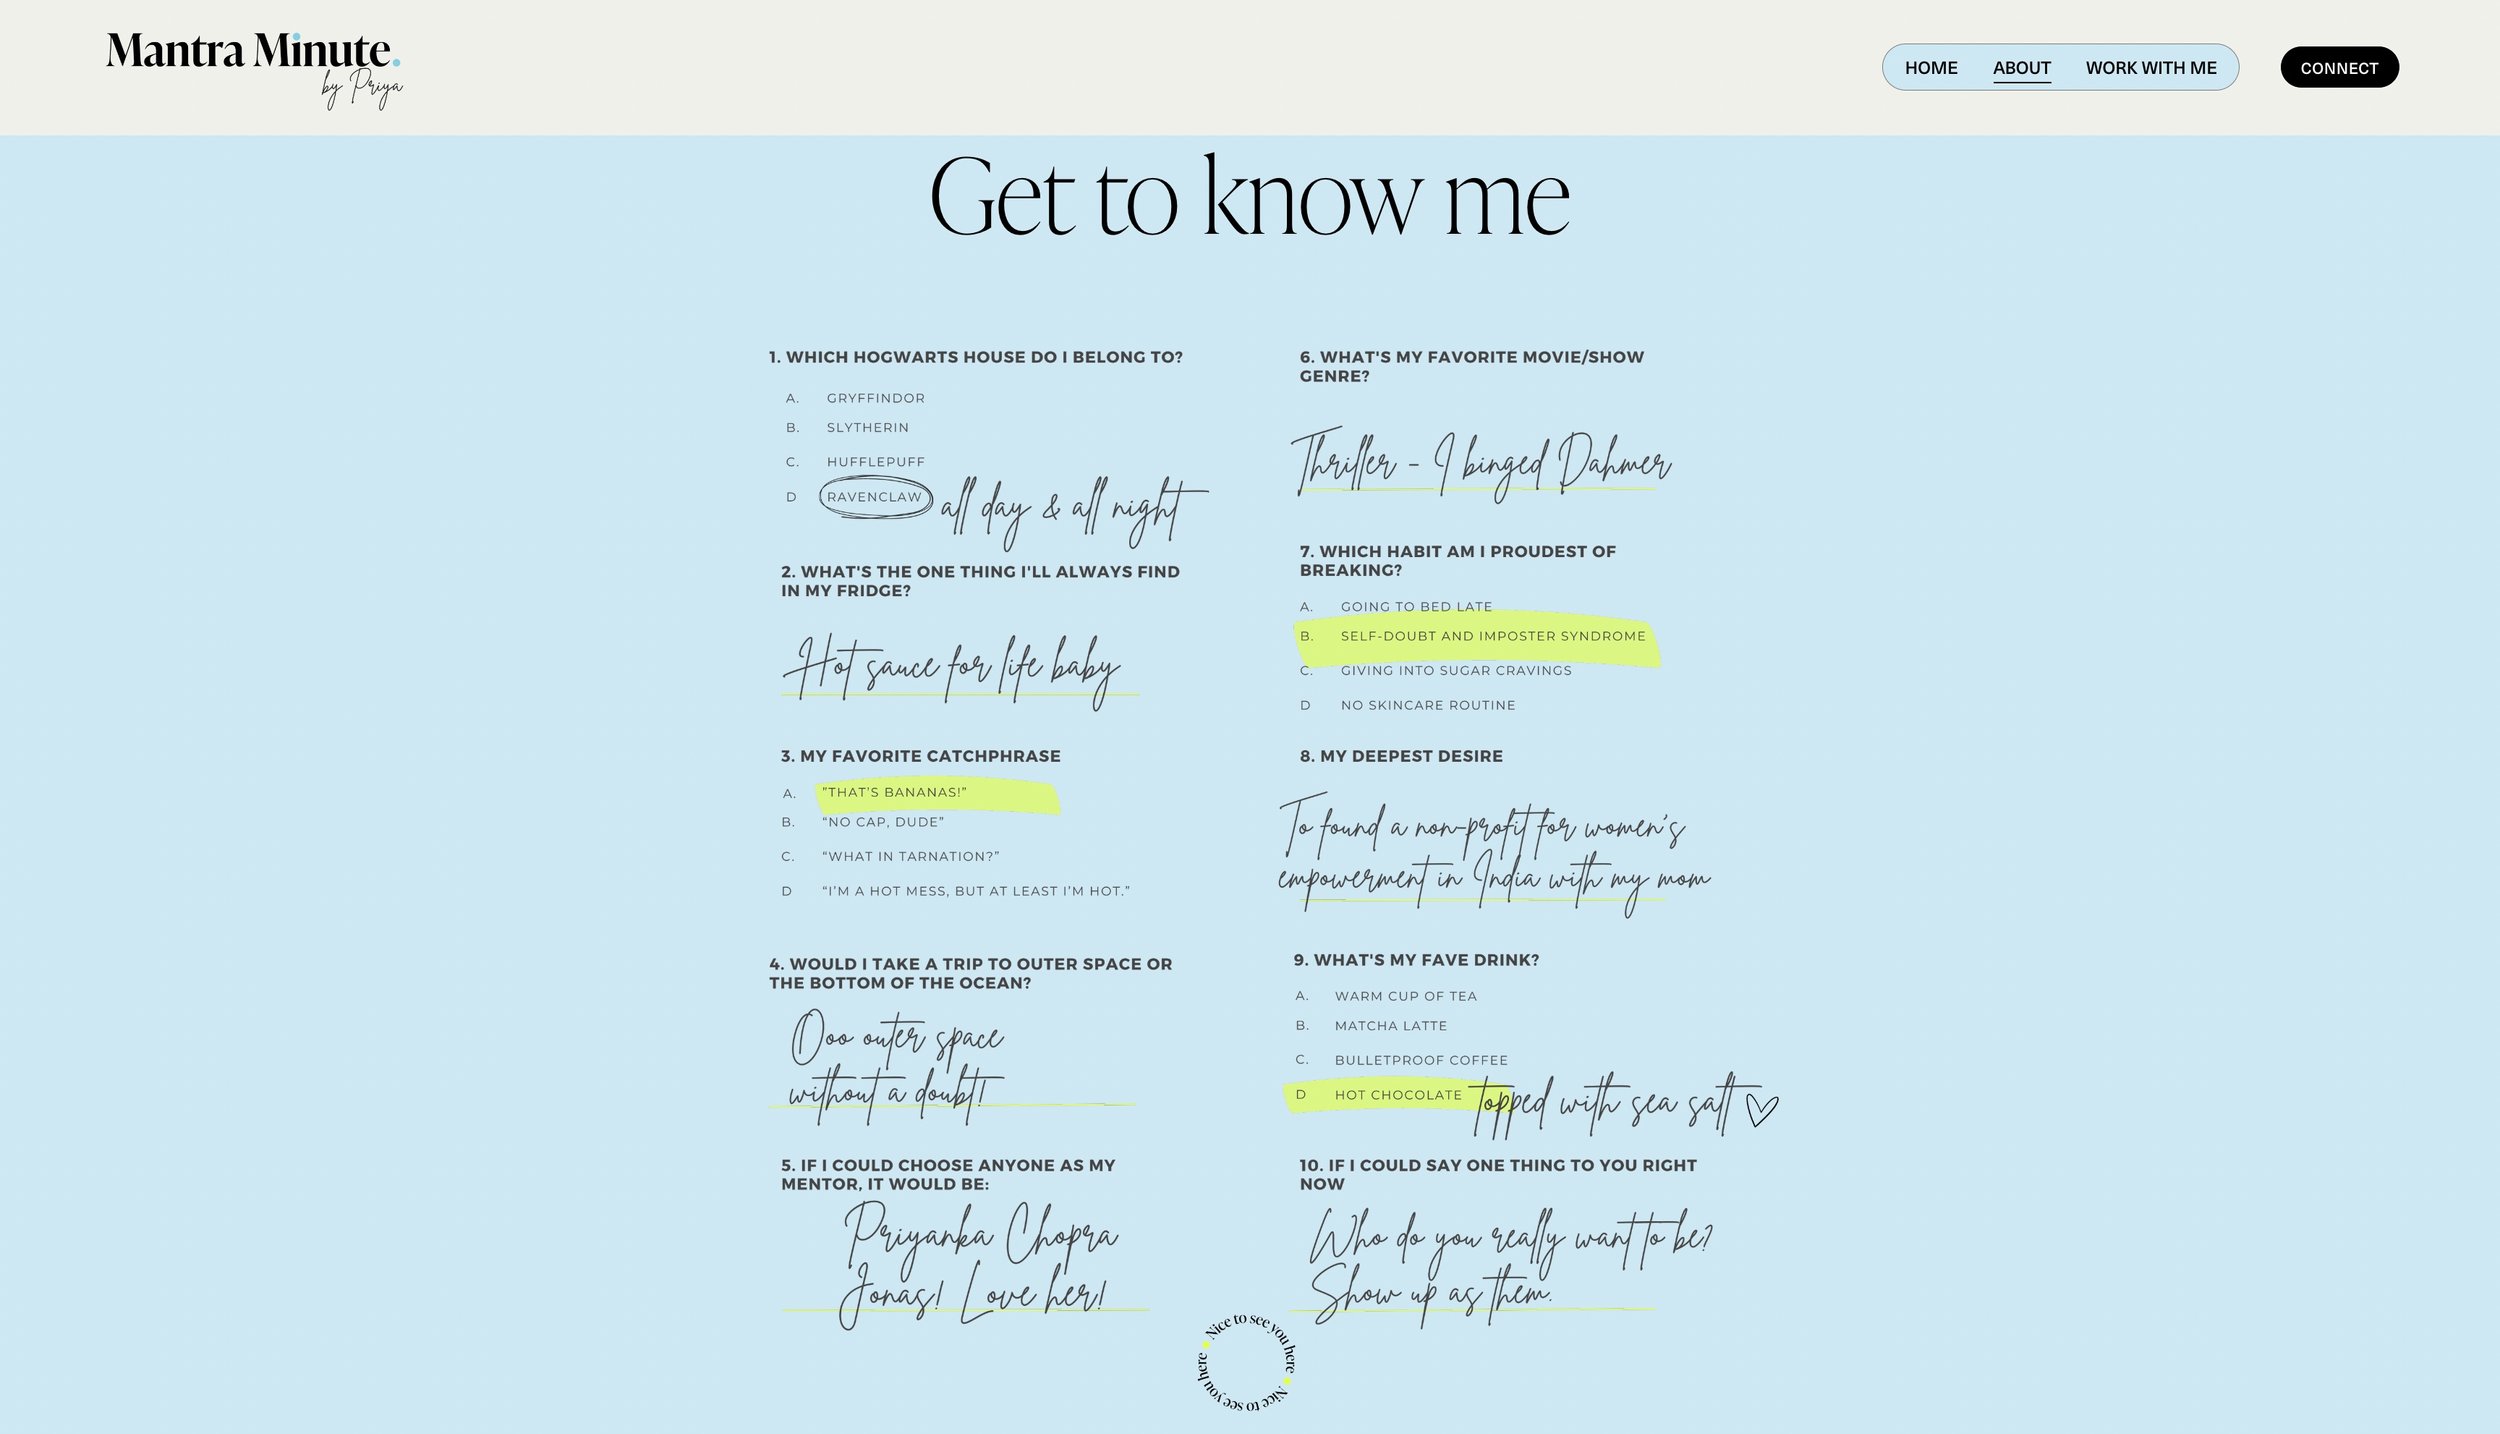 Mantra Minute.
by Priya
HOME ABOUT WORK WITH ME CONNECT
Get to know me
1. WHICH HOGWARTS HOUSE DO I BELONG TO?
A. GRYFFINDOR
B. SLYTHERIN
C. HUFFLEPUFF
D RAVENCLAW all day & all night
2. WHAT'S THE ONE THING I'LL ALWAYS FIND
IN MY FRIDGE?
Hot sauce for life baby
3. MY FAVORITE CATCHPHRASE
A. "THAT'S BANANAS!"
B. "NO CAP, DUDE"
C. "WHAT IN TARNATION?"
D "I'M A HOT MESS, BUT AT LEAST I'M HOT."
4. WOULD I TAKE A TRIP TO OUTER SPACE OR
THE BOTTOM OF THE OCEAN?
Ooo outer space
without a doubt!
5. IF I COULD CHOOSE ANYONE AS MY
MENTOR, IT WOULD BE:
Priyanka Chopra
Jonas! Love her!
6. WHAT'S MY FAVORITE MOVIE/SHOW
GENRE?
Thriller - I binged Dahmer
7. WHICH HABIT AM I PROUDEST OF
BREAKING?
A. GOING TO BED LATE
B. SELF-DOUBT AND IMPOSTER SYNDROME
C. GIVING INTO SUGAR CRAVINGS
D NO SKINCARE ROUTINE
8. MY DEEPEST DESIRE
To found a non-profit for women's
empowerment in India with my mom
9. WHAT'S MY FAVE DRINK?
A. WARM CUP OF TEA
B. MATCHA LATTE
C. BULLETPROOF COFFEE
D HOT CHOCOLATE topped with sea salt
10. IF I COULD SAY ONE THING TO YOU RIGHT
NOW
Who do you really want to be?
Show up as them.
Nice to see you here
Nice to see you here